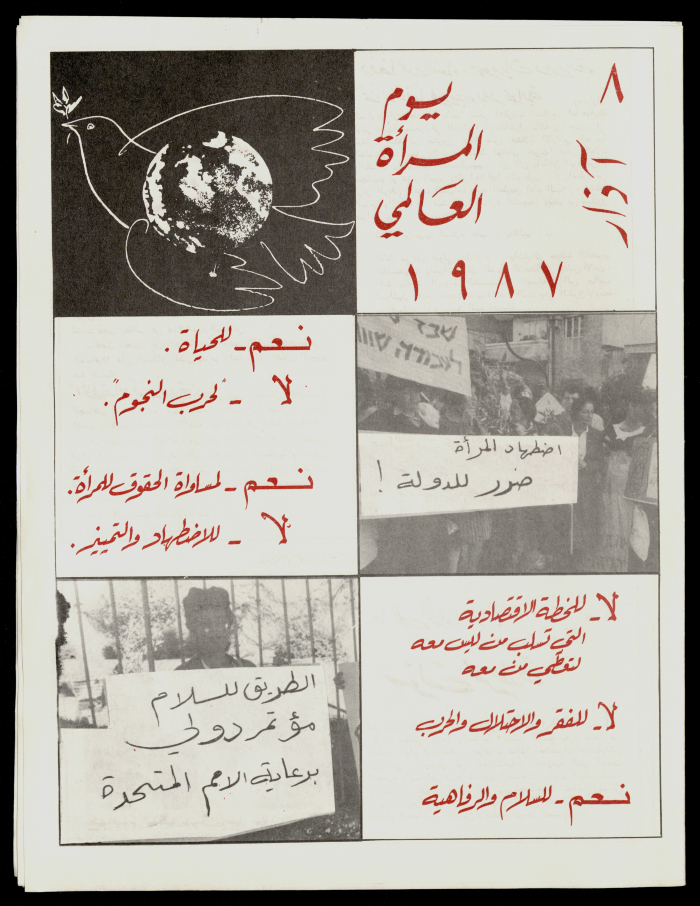 ٨ آذار
يوم
المرأة
العَالمي
١٩٨٧
نعم - للحياة .
لا - "لحرب النجوم" .
نعم - لمساواة الحقوق للمرأة .
لا - للاضطهاد والتمييز .
اضطهاد المرأة
ضرر للدولة !
الطريق للسلام
مؤتمر دولي
برعاية الامم المتحدة
لا - للخطة الاقتصادية
التي تسلب من ليس معه
لتعطي من معه
لا - للفقر والاحتلال والحرب
نعم - للسلام والرفاهية